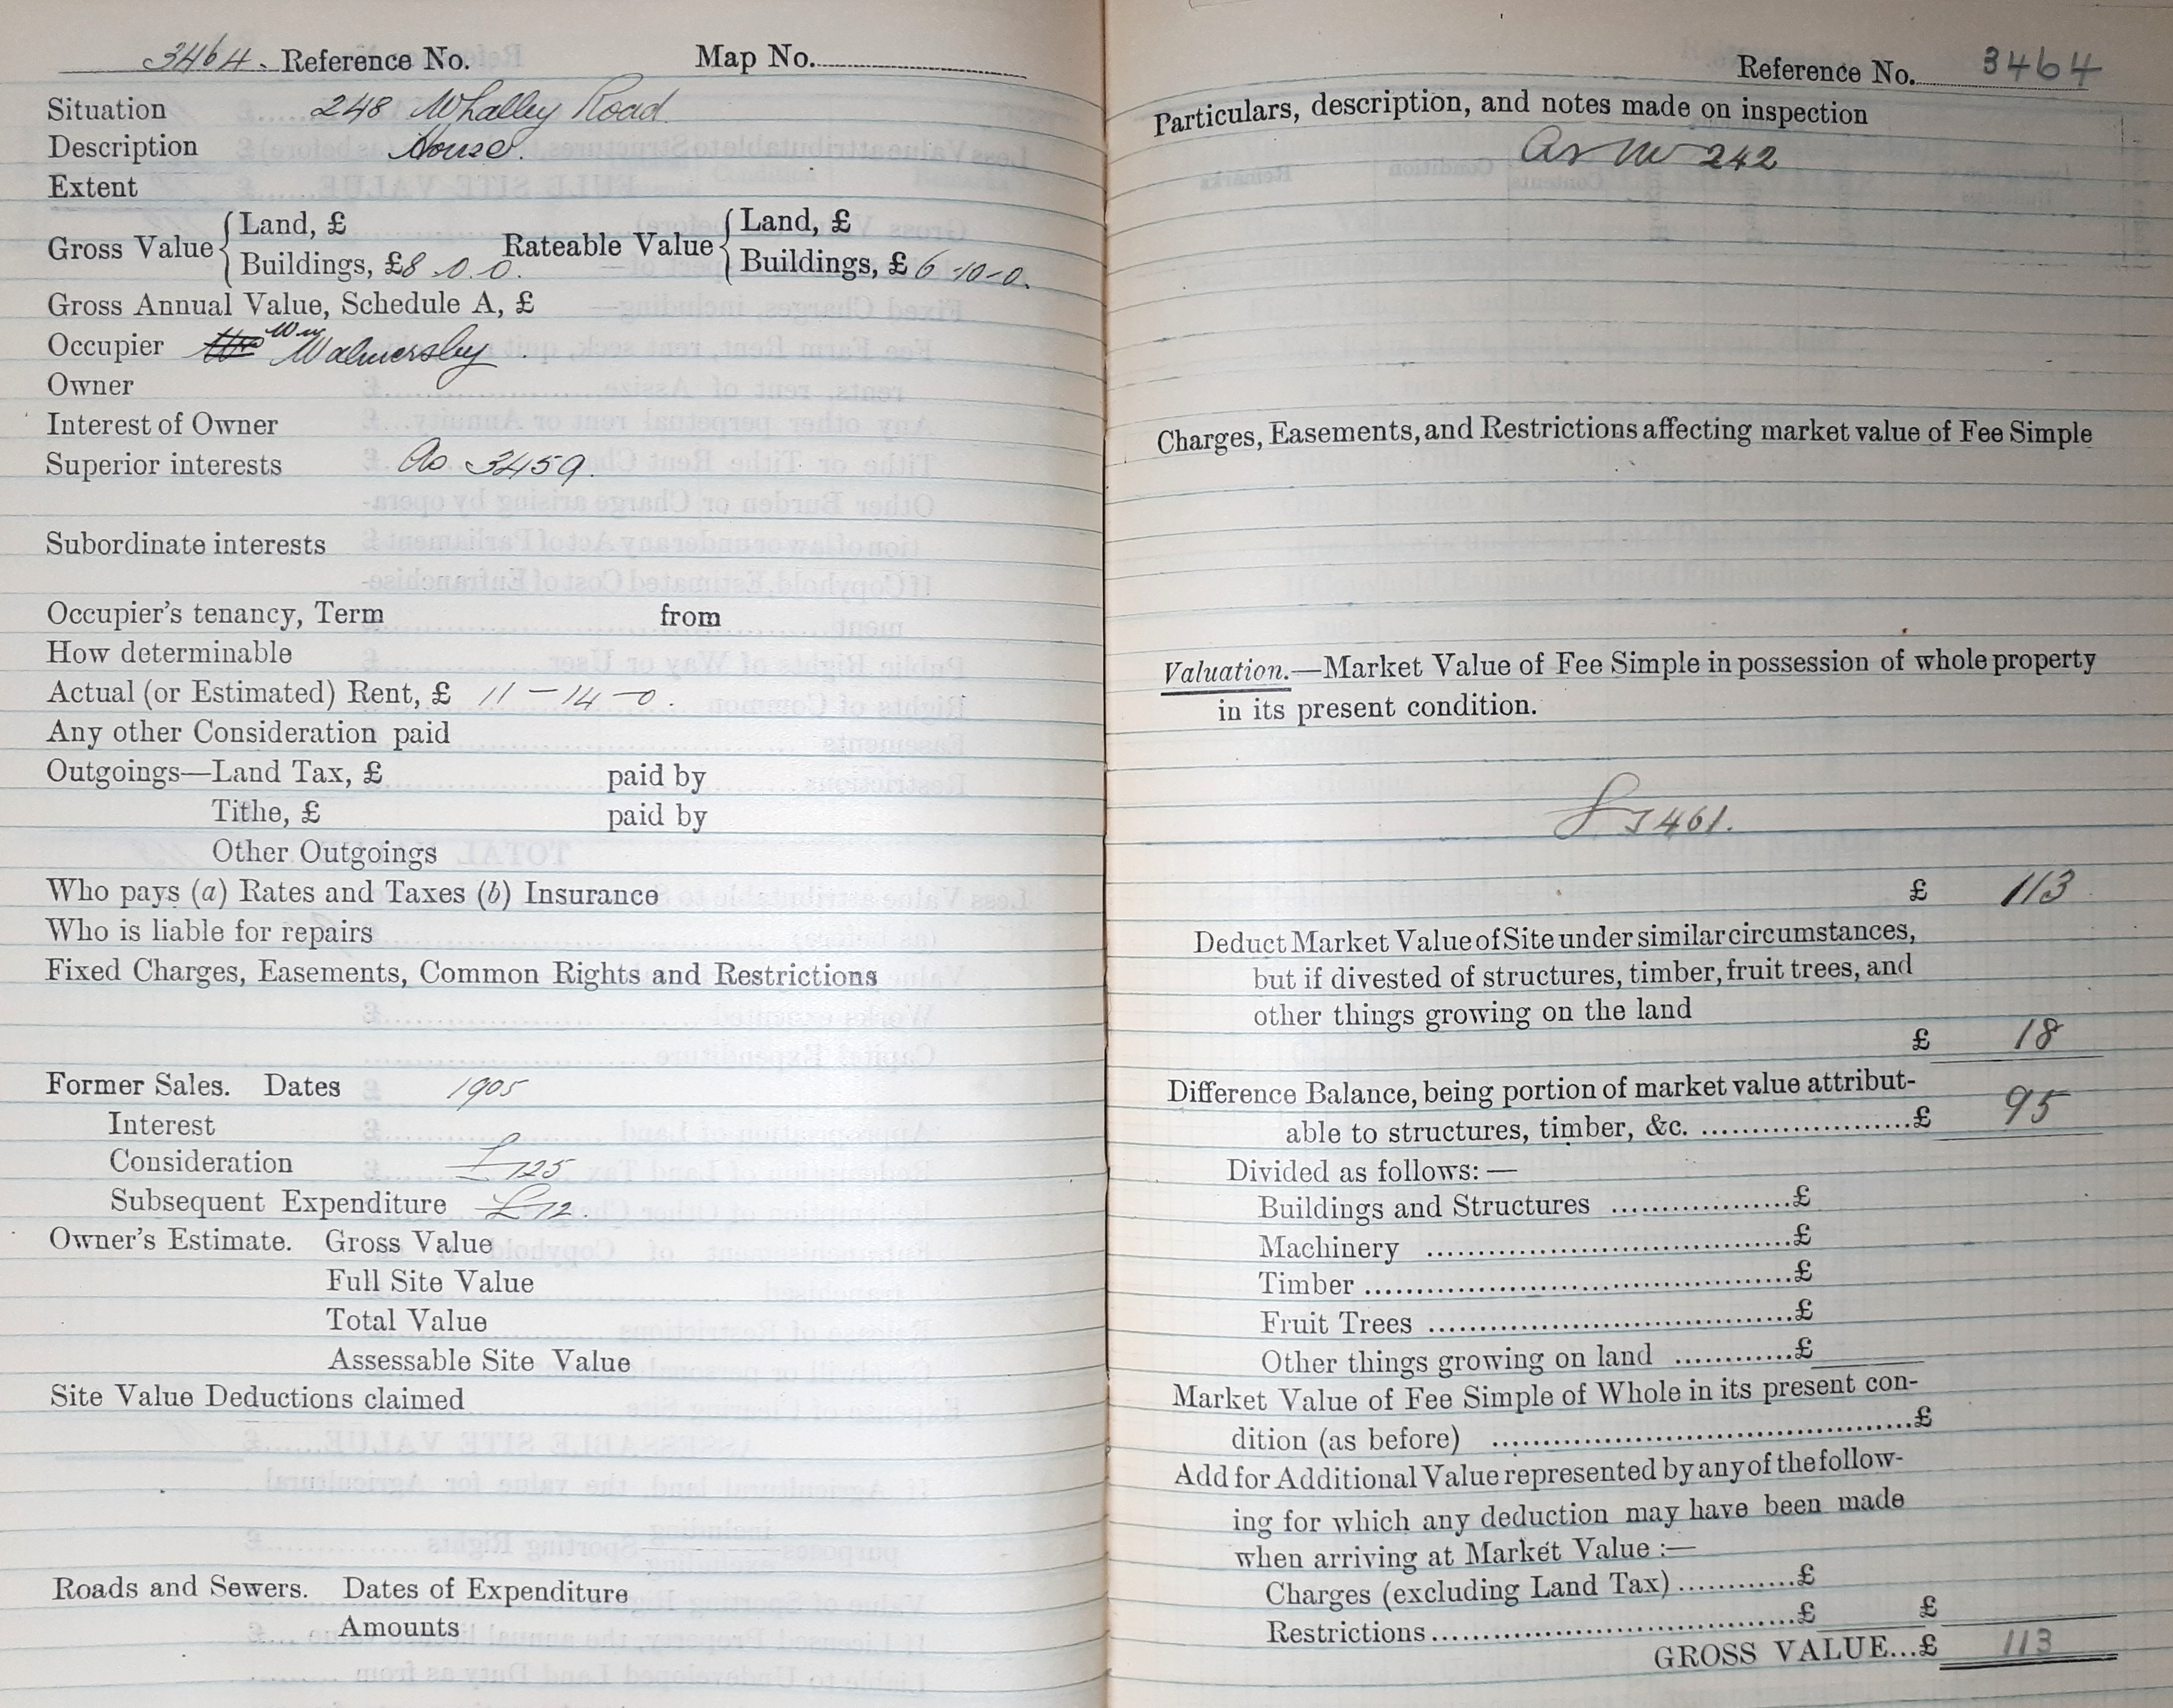 3464. Reference No. Map No.
Situation 248 Whalley Road.
Description House.
Extent
Gross Value { Land, £ Rateable Value { Land, £
Buildings, £8.0.0. Buildings, £6-10-0.
Gross Annual Value, Schedule A, £
Occupier Wm Walmersley
Owner
Interest of Owner
Superior interests As 3459.
Subordinate interests
Occupier's tenancy, Term from
How determinable
Actual (or Estimated) Rent, £ 11-14-0.
Any other Consideration paid
Outgoings—Land Tax, £ paid by
Tithe, £ paid by
Other Outgoings
Who pays (a) Rates and Taxes (b) Insurance
Who is liable for repairs
Fixed Charges, Easements, Common Rights and Restrictions
Former Sales. Dates 1905
Interest
Consideration £125
Subsequent Expenditure £12.
Owner's Estimate. Gross Value
Full Site Value
Total Value
Assessable Site Value
Site Value Deductions claimed
Roads and Sewers. Dates of Expenditure
Amounts
Reference No. 3464
Particulars, description, and notes made on inspection
As No 242
Charges, Easements, and Restrictions affecting market value of Fee Simple
Valuation.—Market Value of Fee Simple in possession of whole property
in its present condition.
3461.
£ 113
Deduct Market Value of Site under similar circumstances,
but if divested of structures, timber, fruit trees, and
other things growing on the land
£ 18
Difference Balance, being portion of market value attribut-
able to structures, timber, &c. ........................£ 95
Divided as follows:—
Buildings and Structures ....................£
Machinery ........................................£
Timber ...............................................£
Fruit Trees ........................................£
Other things growing on land ............£
Market Value of Fee Simple of Whole in its present con-
dition (as before) ..............................................£
Add for Additional Value represented by any of the follow-
ing for which any deduction may have been made
when arriving at Market Value :—
Charges (excluding Land Tax) .............£
Restrictions........................................£ £
GROSS VALUE...£ 113